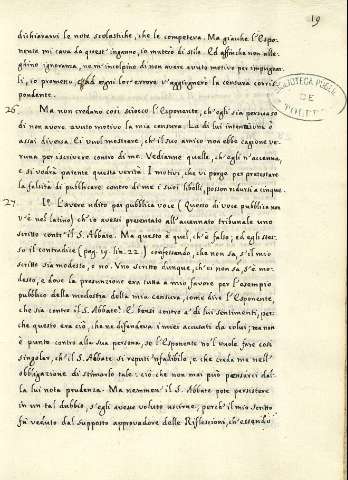 19
dichiararvi le note scolastiche, che le competeva. Ma giacchè l'Espo-
nente mi cava da quest'ingegno, io muterò di stile. Ed affinchè non alle-
ghino ignoranza, nè m'incolpino di non avere avuto motivo per impugnar-
li, io prometto, ad ogni lor errore v'aggiugnerò la censura corris-
pondente.
BIBLIOTECA PUBL.
DE
TOLEDO
26. Ma non credano così sciocco l'Esponente, ch'egli sia persuaso
di non avere avuto motivo la mia censura. La di lui intenzione è
assai diversa. Ei vuol mostrare, ch'il suo amico non ebbe cagione ve-
runa per iscrivere contro di me. Vediamo quelle, ch'egli n'accenna,
e si vedrà patente questa verità. I motivi che vi porge per protestare
la falsità di pubblicare contro di me i suoi libelli, posson ridursi a cinque.
27. I.º L'avere udito per pubblica voce (Questo di voce pubblica non
v'è nel latino) ch'io avessi presentato all'accennato tribunale uno
scritto contr'il S. Abbate. Ma questo è quel, ch'è falso; ed egli stes-
so il contradice (pag. 19. lin. 22.) confessando, che non sa, s'il mio
scritto sia modesto, o no. Uno scritto dunque, ch'ei non sa, s'è mo-
desto, e dove la presunzione era tutta a mio favore per l'esempio
pubblico della modestia della mia censura, come dire l'Esponente,
che sia contro il S. Abbate? E forsi contro a' di lui sentimenti, per-
chè questo era ciò, che ne difendeva i miei accusati da colui; ma non
è punto contro alla sua persona, se l'Esponente no'l vuole fare così
singolar, ch'il S. Abbate si reputi 'nfalibile, e che creda me nell'
obbligazione di stimarlo tale: ciò che non mai può pensarsi dal-
la lui nota prudenza. Ma nemmen' il S. Abbate pote persistere
in un tal dubbio, s'egli avesse voluto uscirne; perch'il mio scritto
fù veduto dal supposto approvadore delle Riflessioni, ch'essendo